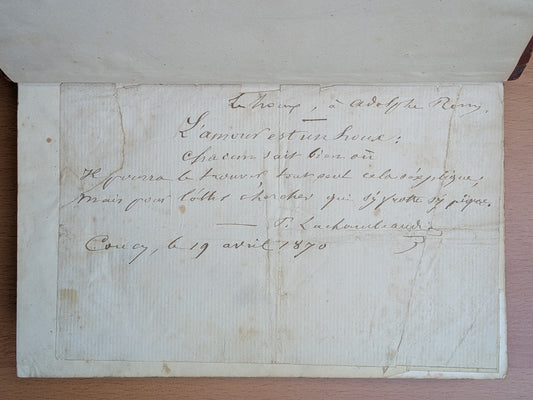 Le houx, à Adolphe Remy.
L'amour est un houx;
chacun sait bien où
Il pourra le trouver, tout seul cela s'explique;
mais pour l'aller chercher qui s'y frotte s'y pique.
P. Lachambeaudie
Coucy, le 19 avril 1870